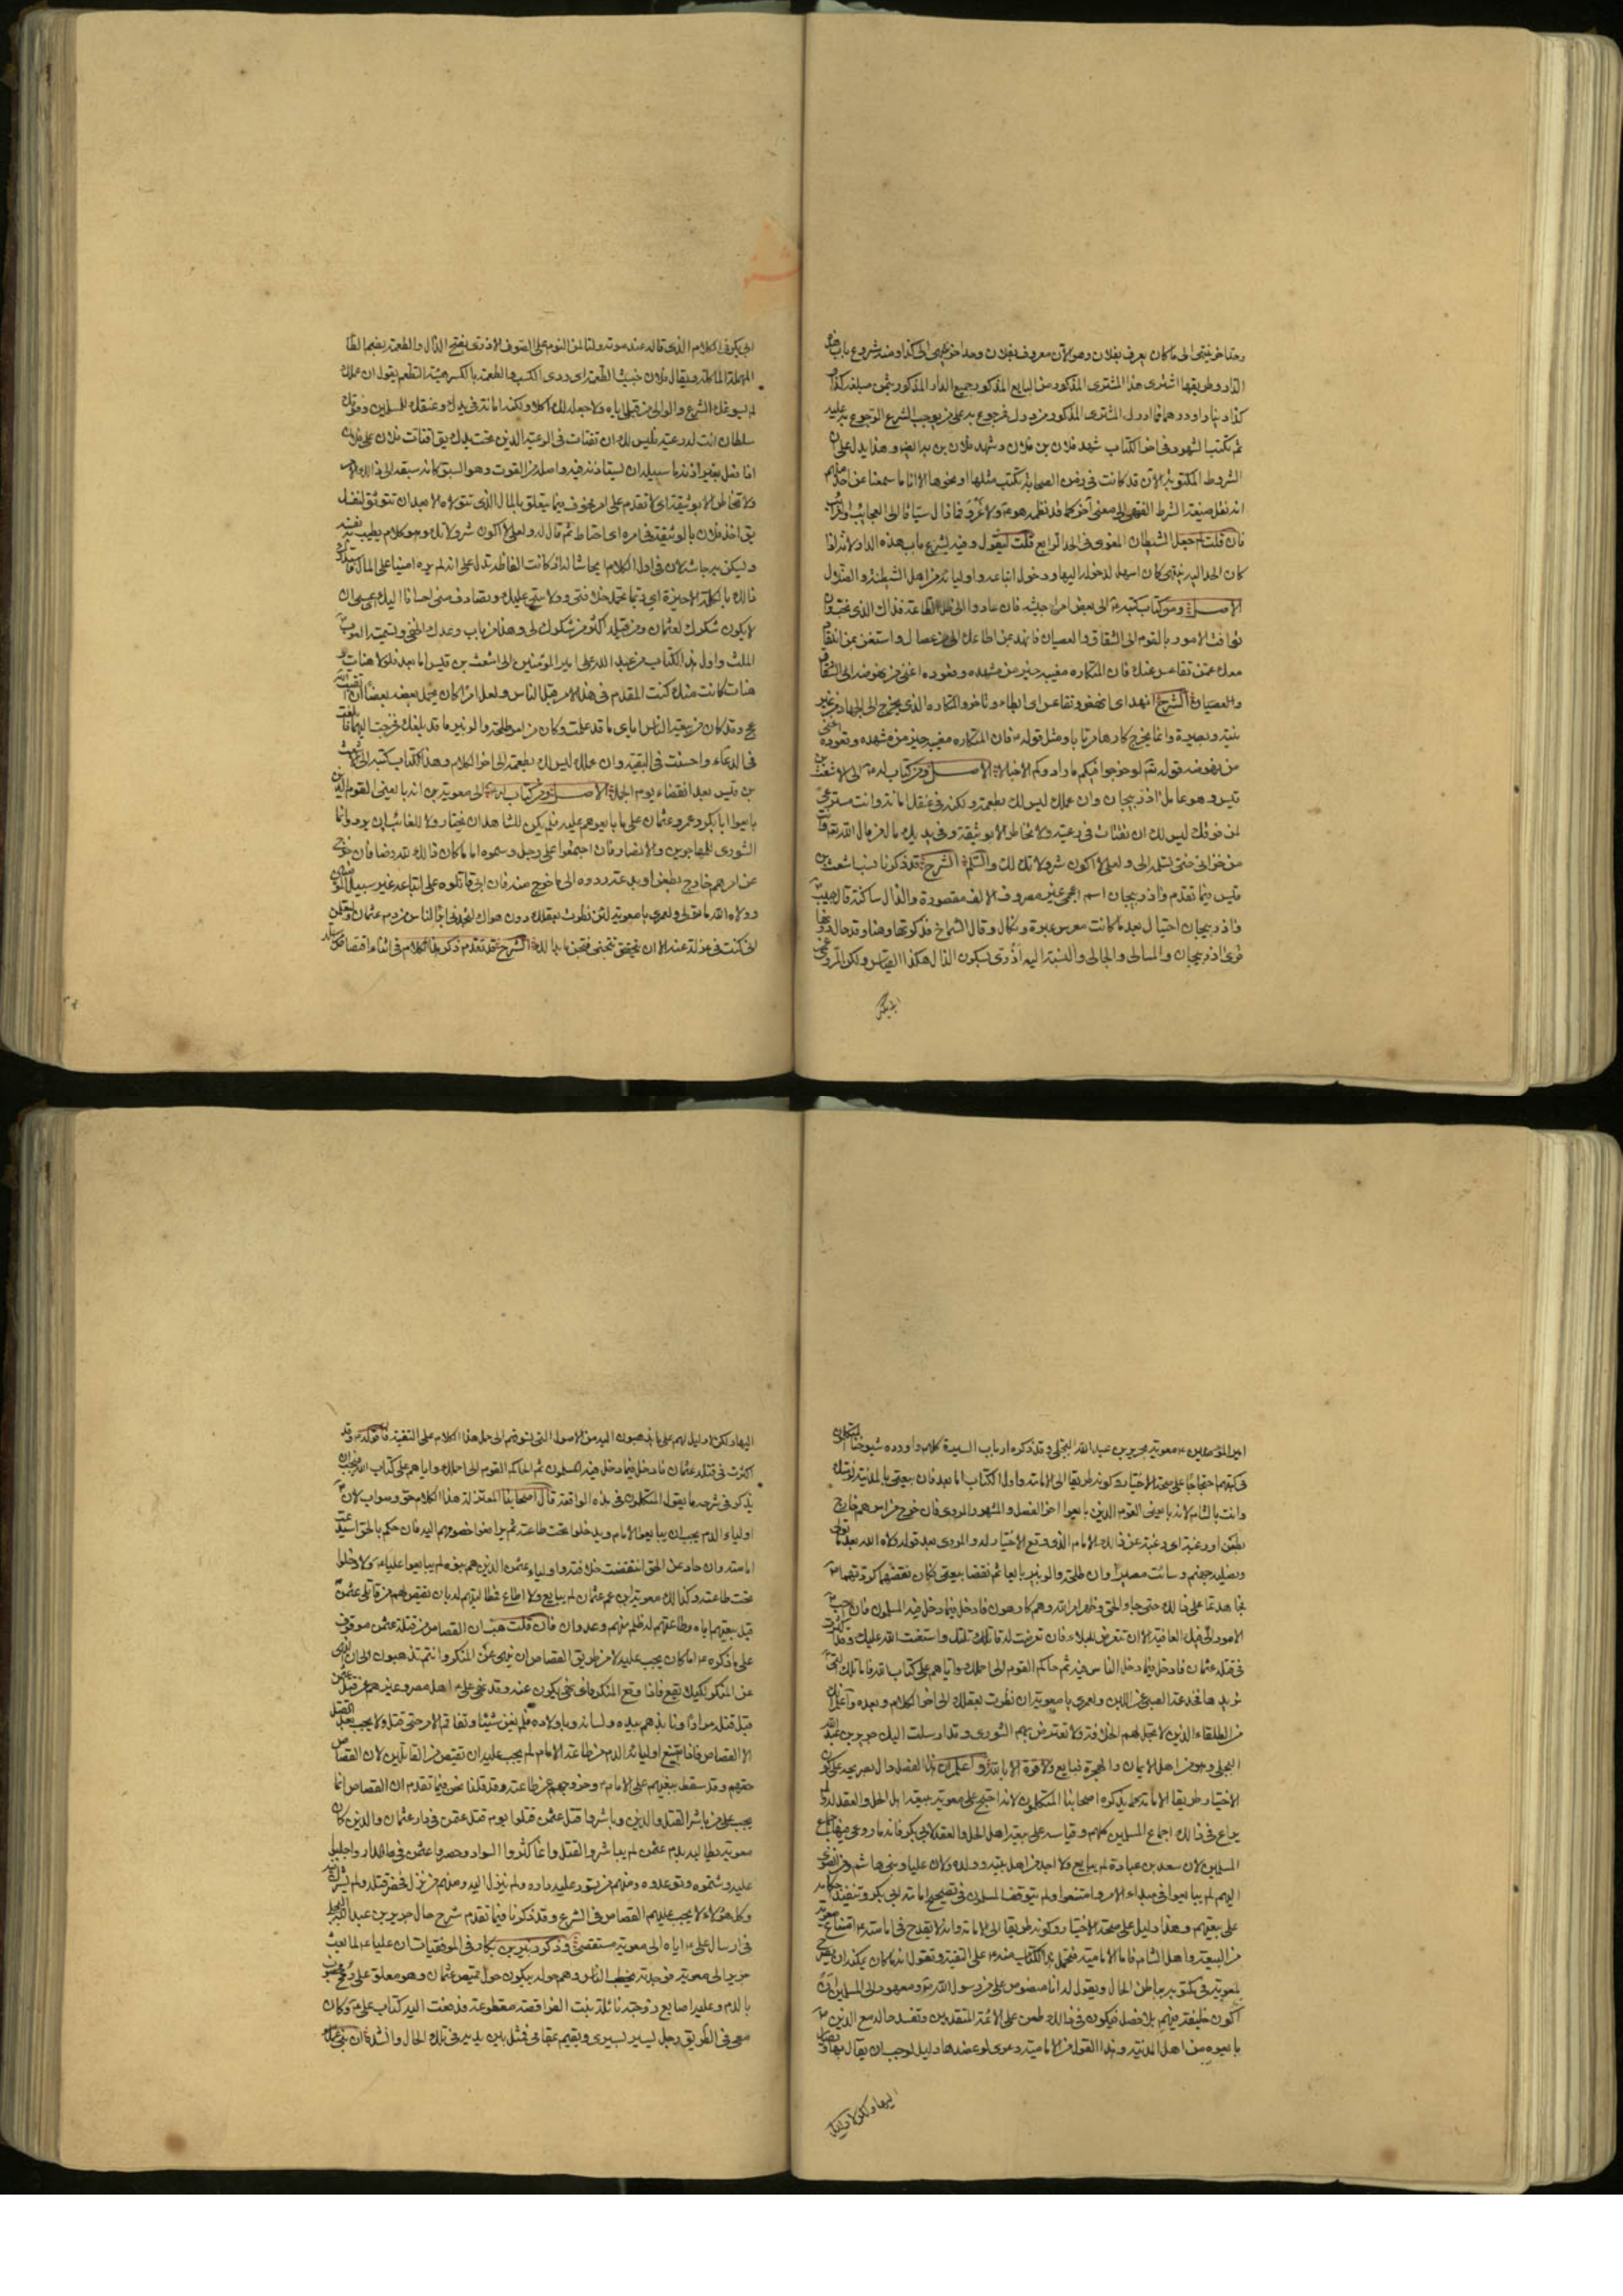 وحد اخر ينتهى الى ما كان يعرف بفلان وهو الآن معروف بفلان وحد اخر ينتهى الى كذا ومنه شروع باب هذه
الدار وطريقها اشترى هذا المشترى المذكور من البايع المذكور جميع الدار المذكورة بثمن مبلغه كذا و
كذا دينارا او درهما فما ادرك المشترى المذكور من درك فرجوع به على من يوجب الشرع الرجوع به عليه
ثم تكتب الشهود فى اخر الكتاب شهد فلان بن فلان وشهد فلان بن فلان ايضا وهذا يدل على ان
الشروط المكتوبة الآن قد كانت فى زمن الصحابة تكتب مثلها او نحوها الا انا ما سمعنا عن احد منهم
انه نقل صيغة الشرط الفقهى الى معنى آخر كما قد نظمه هو ع ولا غرو فما زال سباقا الى العجايب والغرايب
فان قلت لم جعل الشيطان المغوى فى الحد الرابع قلت ليقول وفيه يشرع باب هذه الدار لانه اذا
كان الحد اليه ينتهى كان اسهل لدخوله اليها ودخول اتباعه واوليائه من اهل الشيطنة والضلال
الاصل ومن كتاب كتبه ع الى بعض امراء جيشه فان عادوا الى ظل الطاعة فذاك الذى نحب وان
توافت الامور بالقوم الى الشقاق والعصيان فانهد بمن اطاعك الى من عصاك واستغن بمن انقاد
معك عمن تقاعس عنك فان المتكاره مغيبه خير من مشهده وقعوده اغنى من نهوضه الى الشقاق
والعصيان الشرح انهد اى انهض وتقاعس اى ابطاء وتاخر والمتكاره الذى يخرج الى الجهاد من غير
نية وبصيرة وانما يخرج كارها مرتابا ومثل قوله ع فان المتكاره مغيبه خير من مشهده وقعوده اغنى
من نهوضه قوله تعالى لو خرجوا فيكم ما زادوكم الا خبالا الاصل ومن كتاب له ع الى الاشعث بن
قيس وهو عامل اذربيجان وان عملك ليس لك بطعمة ولكنه فى عنقك امانة وانت مسترعى
لمن فوقك ليس لك ان تفتات فى رعية ولا تخاطر الا بوثيقة وفى يديك مال من مال الله تعالى وانت
من خزانى حتى تسلمه الى ولعلى الا اكون شر ولاتك لك والسلم الشرح قد ذكرنا نسب اشعث بن
قيس فيما تقدم واذربيجان اسم اعجمى غير مصروف الالف مقصورة والذال ساكنة قال حبيب
واذربيجان احتيال بعد ما كانت معرس عبرة ونكال وقال الشماخ تذكرتها وهنا وقد حال دونها
قرى اذربيجان والمسالح والجالى والنسبة اليه اذرى بسكون الذال هكذا القياس ولكن المروى عن
ابى بكر
ابى بكر فى الكلام الذى قاله عند موته ولتألمن النوم على الصوف الاذرى بفتح الذال والطعمة بضم الطا
المهملة الماكلة ويقال فلان خبيث الطعمة اى ردى الكسب والطعمة بالكسر هيئة التطعم يقول ان عملك
لم يسوغك الشرع والوالى من قبلى اياه ولا جعله لك اكلا ولكنه امانة فى يدك وعنقك للمسلمين وفوقك
سلطان انت له رعية فليس لك ان تفتات فى الرعية الذين تحت يدك يقال افتات فلان على فلان
اذا فعل بغير اذنه ما سبيله ان يستاذنه فيه واصله من الفوت وهو السبق كانه سبقه الى ذلك الامر
ولا تخاطر الا بوثيقة اى لا تقدم على امر مخوف فيما يتعلق بالمال الذى تتولاه الا بعد ان تتوثق لنفسك
يقال اخذ فلان بالوثيقة فى امره اى احتاط ثم قال له ولعلى لا اكون شر ولاتك وهو كلام يطيب به نفسه
ويسكن به جاشه لان فى اول الكلام ايحاشا له اذ كانت الفاظه تدل على انه لم يره امينا على المال فاستدرك
ذلك بالكلمة الاخيرة اى ربما تحمد خلافتى وولايتى عليك وتصادف منى احسانا اليك عسى ان
لا يكون شكرك لعثمان ومن قبله اكثر من شكرك لى وهذا من باب وعدك الخفى وتسميه العرب
الملث واول هذا الكتاب من عبد الله على امير المؤمنين الى اشعث بن قيس اما بعد فلولا هنات و
هنات كانت منك كنت المقدم فى هذا الامر قبل الناس ولعل امرا كان يحمل بعضه بعضا ان اتقيت الله
عج وقد كان من بيعة الناس اياى ما قد علمت وكان من امر طلحة والزبير ما قد بلغك فخرجت اليهما فابلغت
فى الدعاء واحسنت فى البقية وان عملك ليس لك بطعمة الى اخر الكلام وهذا الكتاب كتبه الى الاشعث
بن قيس بعد انقضاء يوم الجمل الاصل ومن كتاب له ع الى معوية بن انه بايعنى القوم الذين
بايعوا ابا بكر وعمر وعثمان على ما بايعوهم عليه فلم يكن للشاهد ان يختار ولا للغائب ان يرد وانما
الشورى للمهاجرين والانصار فان اجتمعوا على رجل وسموه اماما كان ذلك لله رضا فان خرج
عن امرهم خارج بطعن او بدعة ردوه الى ما خرج منه فان ابى قاتلوه على اتباعه غير سبيل المؤمنين
وولاه الله ما تولى ولعمرى يا معوية لئن نظرت بعقلك دون هواك لتجدنى ابرأ الناس من دم عثمان ولتعلمن
انى كنت فى عزلة عنه الا ان تتجنى فتجن ما بدا لك الشرح قد تقدم ذكر هذا الكلام فى اثناء اقتصاص مراسلة
امير المؤمنين ع معوية بجرير بن عبد الله البجلى وقد ذكره ارباب السيرة كلهم واورده شيوخنا المتكلمون
فى كتبهم احتجاجا على صحة الاختيار وكونه طريقا الى الامامة واول الكتاب اما بعد فان بيعتى بالمدينة لزمتك
وانت بالشام لانه بايعنى القوم الذين بايعوا اخر الفصل والمشهور المروى فان خرج من امرهم خارج
بطعن او رغبة اى رغبة عن ذلك الامام الذى وقع الاختيار له والمروى بعد قوله ولاه الله بعد ما تولى
ويصليه جهنم وسائت مصيرا وان طلحة والزبير بايعانى ثم نقضا بيعتى فكان نقضهما كردتهما
فجاهدتهما على ذلك حتى جاء الحق وظهر امر الله وهم كارهون فادخل فيما دخل فيه المسلمون فان احب
الامور الى فيك العافية الا ان تتعرض للبلاء فان تعرضت له قاتلتك واستعنت الله عليك وقد اكثرت
فى قتلة عثمان فادخل فيما دخل الناس فيه ثم حاكم القوم الى احملك واياهم على كتاب الله فاما تلك التى
تريدها فخدعة الصبى عن اللبن ولعمرى يا معوية ان نظرت بعقلك الى اخر الكلام وبعده واعلم انك
من الطلقاء الذين لا تحل لهم الخلافة ولا تعترض بهم الشورى وقد ارسلت اليك جرير بن عبد الله
البجلى وهو من اهل الايمان والهجرة فبايع ولا قوة الا بالله واعلم ان هذا الفصل دال بصريحه على كون
الاختيار طريقا الى الامامة كما يذكره اصحابنا المتكلمون لانه احتج على معوية ببيعة اهل الحل والعقد له ولم
يراع فى ذلك اجماع المسلمين كلهم وقياسه على بيعة اهل الحل والعقد لابى بكر فانه ما روعى فيها اجماع
المسلمين لان سعد بن عبادة لم يبايع ولا احد من اهل بيته وولده ولان عليا وبنى هاشم ومن انضوى
اليهم لم يبايعوا فى مبداء الامر وامتنعوا ولم يتوقف المسلمون فى تصحيح امامة ابى بكر وتنفيذ احكامه
على بيعتهم وهذا دليل على صحة الاختيار وكونه طريقا الى الامامة وانه لا يقدح فى امامته ع امتناع معوية
من البيعة واهل الشام فاما الامامية فتحمل هذا الكتاب منه ع على التقية وتقول انه ما كان يمكنه ان يصرح
لمعوية فى مكتوبه بباطن الحال ويقول له انا منصوص على من رسول الله ص ومعهود الى المسلمين ان
اكون خليفة فيهم بلا فصل فيكون فى ذلك طعن على الائمة المتقدمين وتفسد حاله مع الذين
بايعوه من اهل المدينة وهذا القول من الامامية دعوى لو عضدها دليل لوجب ان يقال بها ويصار
اليها ولكن لا دليل
اليها ولكن لا دليل لهم على ما يذهبون اليه من الاصول التى تسوقهم الى حمل هذا الكلام على التقية فاما قوله ع وقد
اكثرت فى قتلة عثمان فادخل فيما دخل فيه المسلمون ثم حاكم القوم الى احملك واياهم على كتاب الله فيجب ان
يذكر فى شرحه ما يقول المتكلمون فى هذه الواقعة قال اصحابنا المعتزلة هذا الكلام حق وصواب لان
اولياء الدم يجب ان يبايعوا الامام ويدخلوا تحت طاعته ثم يرافعوا خصومهم اليه فان حكم بالحق استديمت
امامته وان حاد عن الحق انتقضت خلافته واولياء عثمن الذين هم بنوه لم يبايعوا عليا ع ولا دخلوا
تحت طاعته وكذلك معوية ابن عم عثمان لم يبايع ولا اطاع فمطالبتهم له بان يقتص لهم من قاتلى عثمن
قبل بيعتهم اياه وطاعتهم له ظلم منهم وعدوان فان قلت هب ان القصاص من قتلة عثمن موقوف
على ما ذكره ع اما كان يجب عليه لا من طريق القصاص ان ينهى عن المنكر وانتم تذهبون الى ان النهى
عن المنكر واجب على من هو سوقة فكيف على الامام الاعظم قلت هذا غير وارد هاهنا لان النهى
قبل قتله مرارا ونابذهم بيده ولسانه وباولاده فلم يغن شيئا وتفاقم الامر حتى قتل ولا يجب بعد القتل
الا القصاص فاذا امتنع اولياء الدم من طاعة الامام لم يجب عليه ان يقتص من القاتلين لان القصاص
حقهم وقد سقط ببغيهم على الامام وخروجهم عن طاعته وقد قلنا نحن فيما تقدم ان القصاص انما
يجب على من باشر القتل والذين باشروا قتل عثمن قتلوا يوم قتل عثمن فى دار عثمان والذين كان
معوية يطالبه بدم عثمن لم يباشروا القتل وانما كثروا السواد وحصروا عثمن فى داره واجلبوا
عليه وشتموه وتوعدوه ومنهم من تسور عليه داره ولم ينزل اليه ومنهم من نزل فحضر قتله ولم يشرك فيه
وكل هؤلاء لا يجب عليهم القصاص فى الشرع وقد ذكرنا فيما تقدم شرح حال جرير بن عبد الله البجلى
فى ارسال على ع اياه الى معوية مستقصى وذكر زبير بن بكار فى الموفقيات ان عليا ع لما بعث
جريرا الى معوية فوجدته يخطب الناس وهم حوله يبكون حول قميص عثمان وهو معلق على رمح مخضوب
بالدم وعليه اصابع زوجته نائلة بنت الفرافصة مقطوعة فدفعت اليه كتاب على ع وكان
معى فى الطريق رجل يسير بسيرى ويقيم بمقامى فمثل بين يديه فى تلك الحال وانشده ان بنى عمك